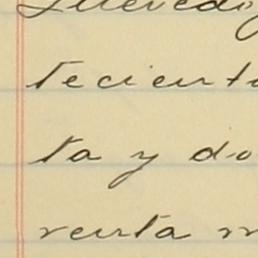 tecient
ta y do
renta m